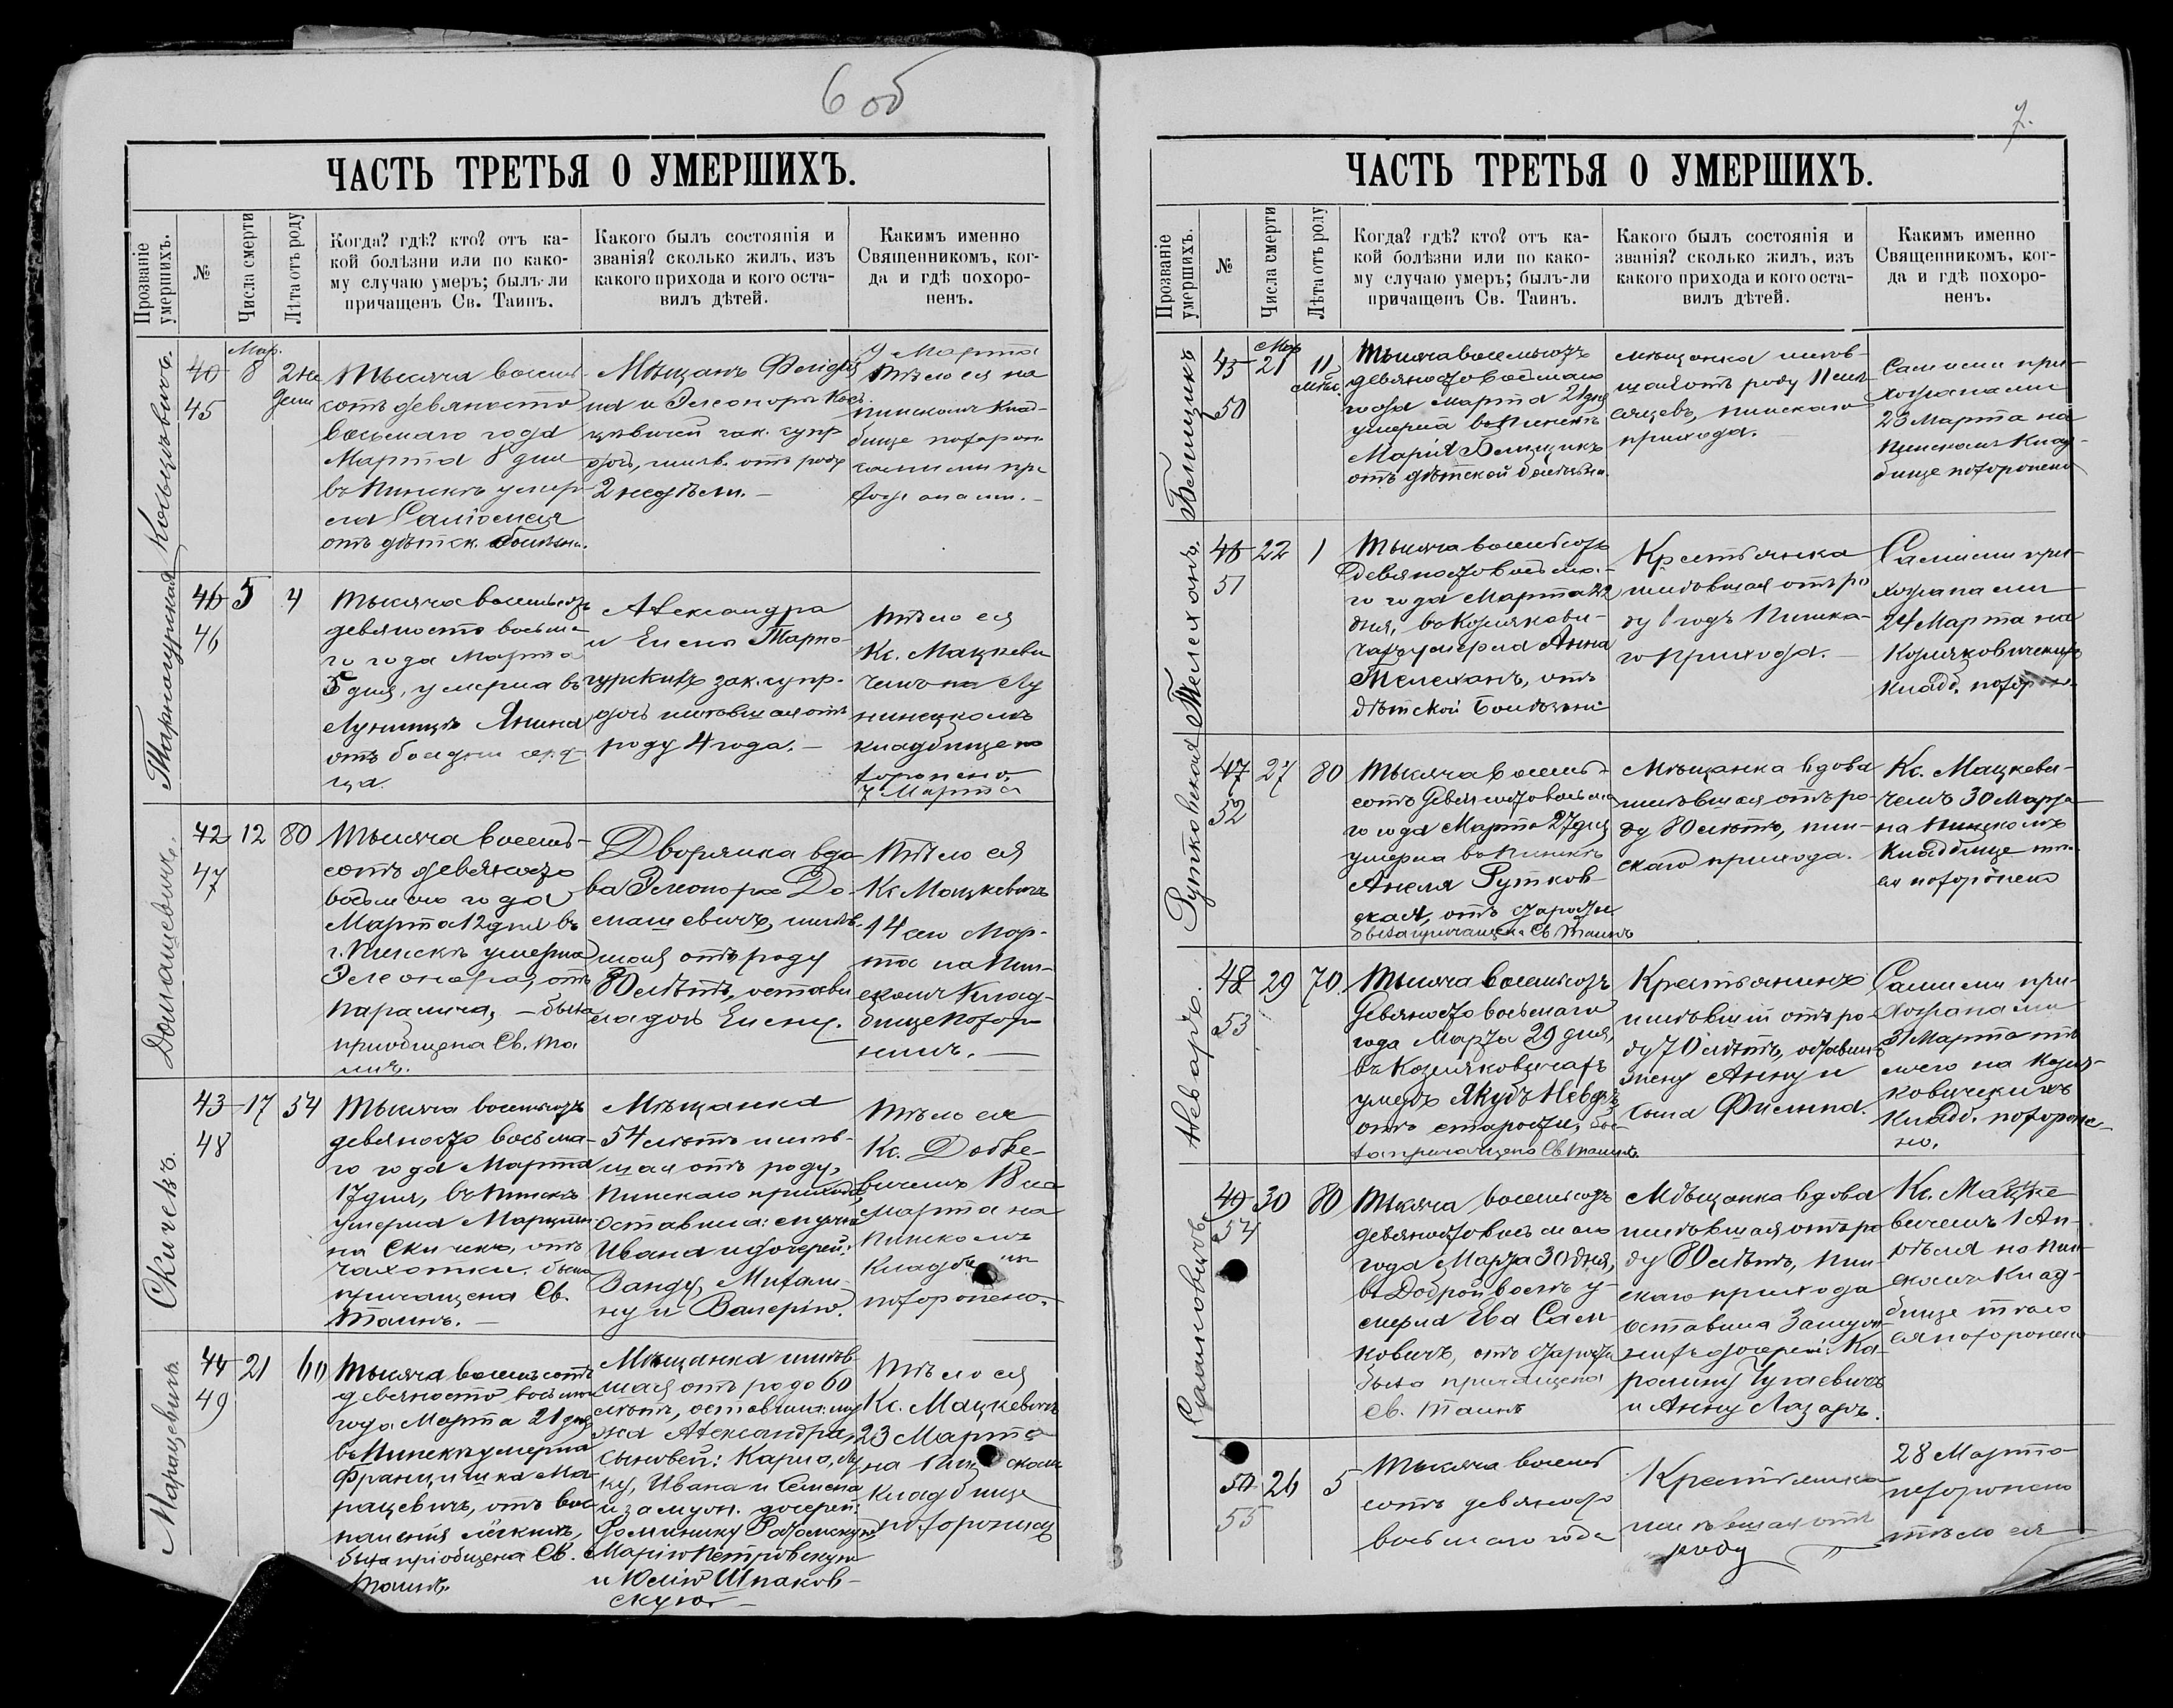 6 об
ЧАСТЬ ТРЕТЬЯ О УМЕРШИХЪ.
Прозваніе умершихъ.
№
Числа смерти
Лѣта отъ роду
Когда? гдѣ? кто? отъ ка-
кой болѣзни или по како-
му случаю умеръ; былъ-ли
причащенъ Св. Таинъ.
Какого былъ состоянія и
званія? сколько жилъ, изъ
какого прихода и кого оста-
вилъ дѣтей.
Какимъ именно
Священникомъ, ког-
да и гдѣ похоро-
ненъ.
40
45
Мар.
8
2 не
дели
Тысяча восемь
сотъ девяносто
восьмаго года
Марта 8 дня
въ Пинскѣ умер
ла Саломея
отъ дѣтск. болѣзни.
Мѣщанъ
на и Элеоноры
зак. супр
2 недѣли.
9 Марта
тѣло ея на
Пинскомъ клад-
бище похорон
самими при
хожанами.
Тарногурская
46
5
4
Тысяча восемьсотъ
девяносто восьма
го года Марта
5 дня, умерла въ
Лунинцѣ Янина
отъ болѣзни серд
ца.
Александра
и Елены Тарно-
гурскихъ зак. супр.
дочь жившая отъ
роду 4 года.
тѣло ея
Кс. Мацкеви
чемъ на Лу
нинецкомъ
кладбище по
хоронено
7 Марта
Домашевичъ.
42
47
12
80
Тысяча восемь-
сотъ девяносто
восьмаго года
Марта 12 дня въ
г. Пинскѣ умерла
Элеонора, отъ
паралича, была
приобщена Св. Та
инъ.
Дворянка вдо
ва Элеонора До-
машевичъ, жив-
шая отъ роду
80 лѣтъ, остави
ла дочь Елену.
тѣло ея
Кс Мацкевичъ
14 сего Мар-
та на Пин-
скомъ клад-
бище похоро
нилъ.
Скичекъ.
43
48
17
54
Тысяча восемьсотъ
девяносто восьма-
го года Марта
17 дня, въ Пинскѣ
умерла Марцели
на Скичекъ, отъ
чахотки. была
причащена Св.
Таинъ.
Мѣщанка
54 лѣтъ жив-
шая отъ роду,
Пинскаго прихода
Оставила: мужа
Ивана и дочерей:
Ванду, Михали-
ну и Валерію.
тѣло ея
Кс. Добке-
вичемъ 18 на
Марта на
Пинскомъ
кладби
похоронено.
Марацевичъ.
44
49
21
60
Тысяча восемьсотъ
девяносто восьмаго
года Марта 21 дня
въ Пинскѣ умерла
Францишка Ма-
рацевичъ, отъ вос
паленія лёгкихъ,
была пріобщена Св.
Таинъ.
Мѣщанка жив-
шая отъ роду 60
лѣтъ, оставила: му
жа Александра,
сыновей: Карла, Лу
ку, Ивана и Семена
и замужн. дочерей:
Доминику Радомскую
Марію Петровскую
и Юлію Шпаков-
скую.
тѣло ея
Кс. Мацкевичъ
23 Марта
на Пинскомъ
кладбище
похоронилъ
7.
ЧАСТЬ ТРЕТЬЯ О УМЕРШИХЪ.
Прозваніе умершихъ.
№
Числа смерти
Лѣта отъ роду
Когда? гдѣ? кто? отъ ка-
кой болѣзни или по како-
му случаю умеръ; былъ-ли
причащенъ Св. Таинъ.
Какого былъ состоянія и
званія? сколько жилъ, изъ
какого прихода и кого оста-
вилъ дѣтей.
Какимъ именно
Священникомъ, ког-
да и гдѣ похоро-
ненъ.
45
50
Мар
21
11
мѣс.
Тысяча восемьсотъ
девяносто восьмаго
года Марта 21 дня
умерла въ Пинскѣ
Марія
отъ дѣтской болѣзни.
мѣщанка жив-
шая отъ роду 11 мѣс-
яцевъ, пинскаго
прихода.
Самими при-
хожанами
23 Марта на
Пинскомъ клад-
бище похоронено
Телеханъ.
46
51
22
1
Тысяча восемьсотъ
девяносто восьма-
го года Марта 22
дня, въ Козлякови-
чахъ умерла Анна
Телеханъ, отъ
дѣтской болѣзни
Крестьянка
жившая отъ ро
ду 1 годъ Пинска-
го прихода.
Самими при-
хожанами
24 Марта на
Козляковичскомъ
кладб. похорон.
Рутковская
47
52
27
80
Тысяча восемь-
сотъ девяносто восьма
го года Марта 27 дня
умерла въ Пинскѣ
Анеля Рутков-
ская, отъ старости.
была причащена Св Таинъ
Мѣщанка вдова
жившая отъ ро-
ду 80 лѣтъ, пин-
скаго прихода.
Кс. Мацкеви-
чемъ 30 Марта
на Пинскомъ
кладбище тѣ-
ея похоронено
48
53
29
70.
Тысяча восемьсотъ
девяносто восьмаго
года Марта 29 дня,
въ Козляковичахъ
умеръ Якубъ
отъ старости,
причащенъ Св Таинъ.
Крестьянинъ
жившій отъ ро-
ду 70 лѣтъ, оставилъ
жену Анну и
сына Филипа.
Самими при-
хожанами
31 Марта тѣ
ло его на Козля-
ковичскимъ
кладб. похороне-
но.
Самковичъ.
49
54
30
80
Тысяча восемьсотъ
девяносто восьмаго
года Марта 30 дня,
въ Доброй волѣ у-
мерла Ева Сам-
ковичъ, отъ старости
была причащена
Св. Таинъ
Мѣщанка вдова
жившая отъ ро
ду 80 лѣтъ, Пин-
скаго прихода
оставила замуж-
нихъ дочерей: Ка-
ролину Чугаевичъ
и Анну Лазаръ.
Кс. Мацке
вичемъ 1 Ап-
рѣля на Пин-
скомъ клад-
бище тѣло
ея похоронено
50
55
26
5
Тысяча восемь
сотъ девяносто
восьмаго года
Крестьянка
жившая отъ
роду
28 Марта
похоронено
тѣло ея